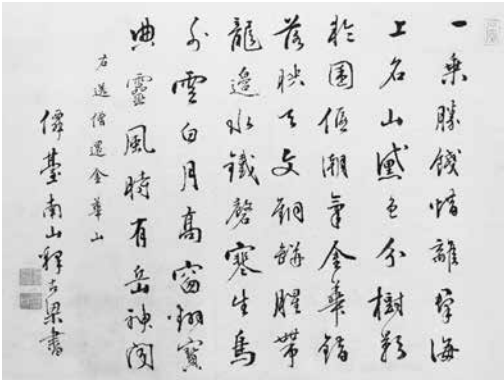 一乘勝餞惜離羣海
上名山黛色分樹影
園潮氣金華錯
落映天文銅缾腥帶
龍邊水鐵磬寒生鳥
外雲白月高窗翻寶
典靈風時有岳神聞
右送僧還金華山
僊臺南山釋古梁書